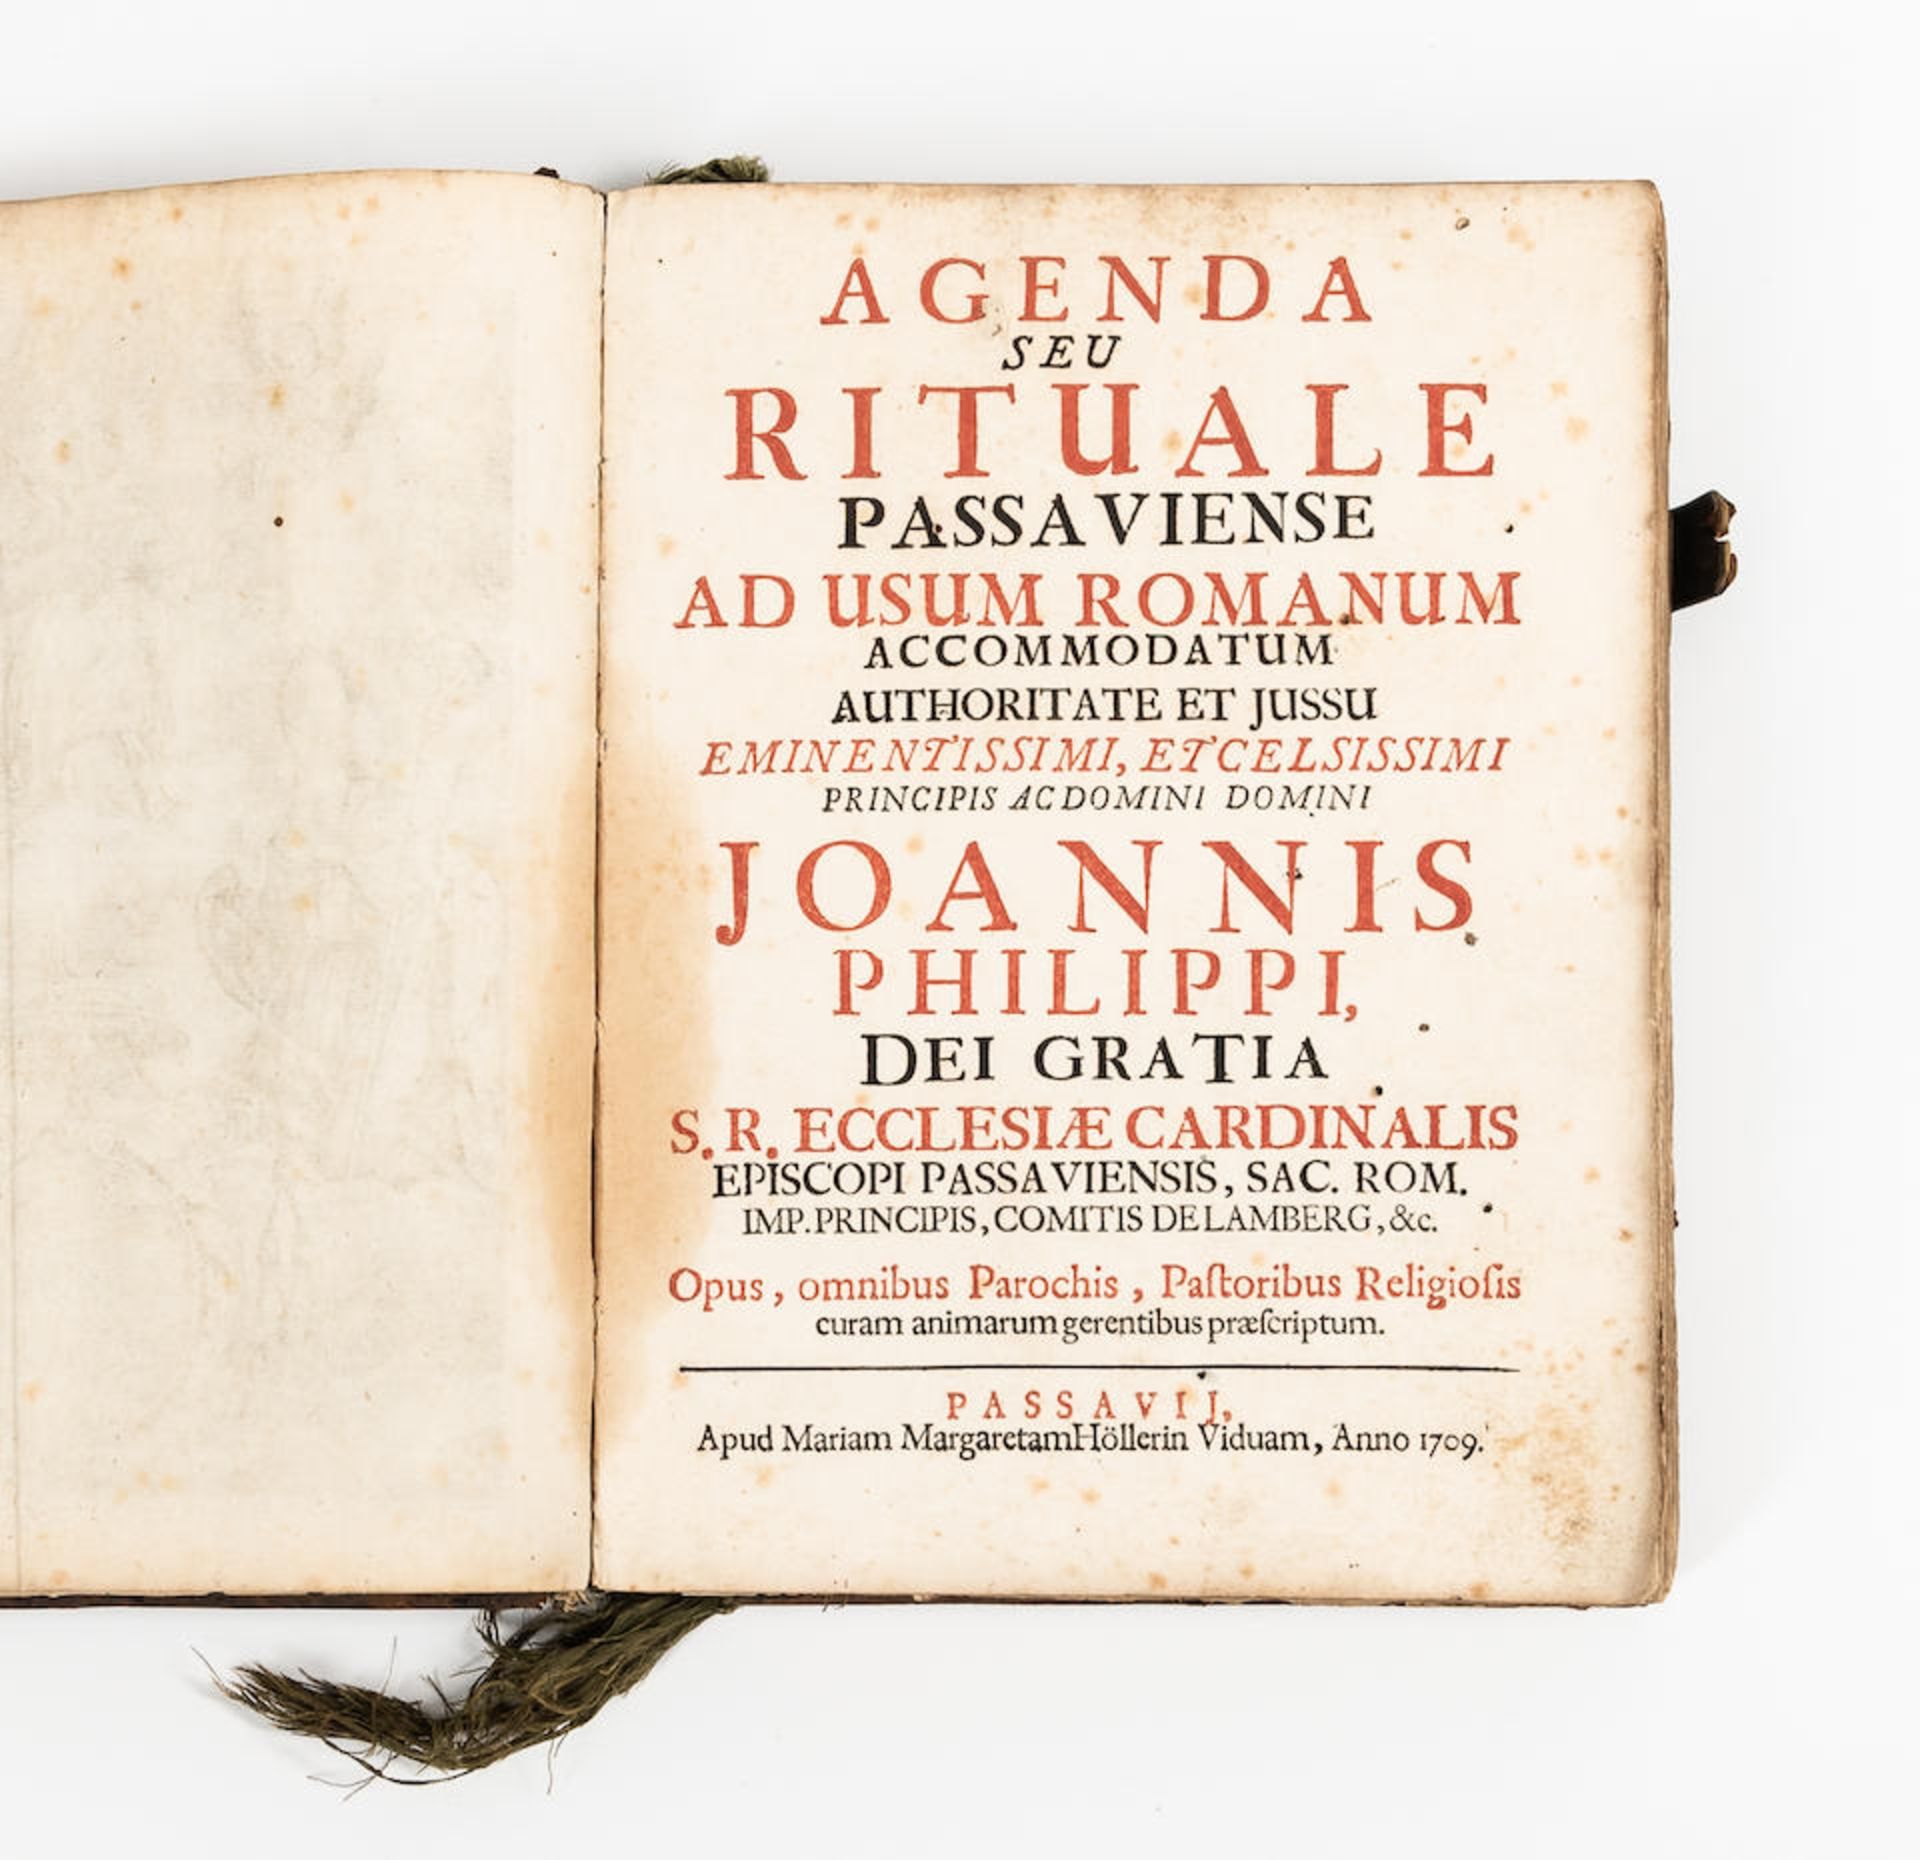 AGENDA
SEU
RITUALE
PASSAVIENSE
AD USUM ROMANUM
ACCOMMODATUM
AUTHORITATE ET JUSSU
EMINENTISSIMI, ET CELSISSIMI
PRINCIPIS AC DOMINI DOMINI
JOANNIS
PHILIPPI,
DEI GRATIA
S. R. ECCLESIÆ CARDINALIS
EPISCOPI PASSAVIENSIS, SAC. ROM.
IMP. PRINCIPIS, COMITIS DE LAMBERG, &c.
Opus, omnibus Parochis, Paſtoribus Religioſis
curam animarum gerentibus præſcriptum.
PASSAVIJ,
Apud Mariam Margaretam Höllerin Viduam, Anno 1709.